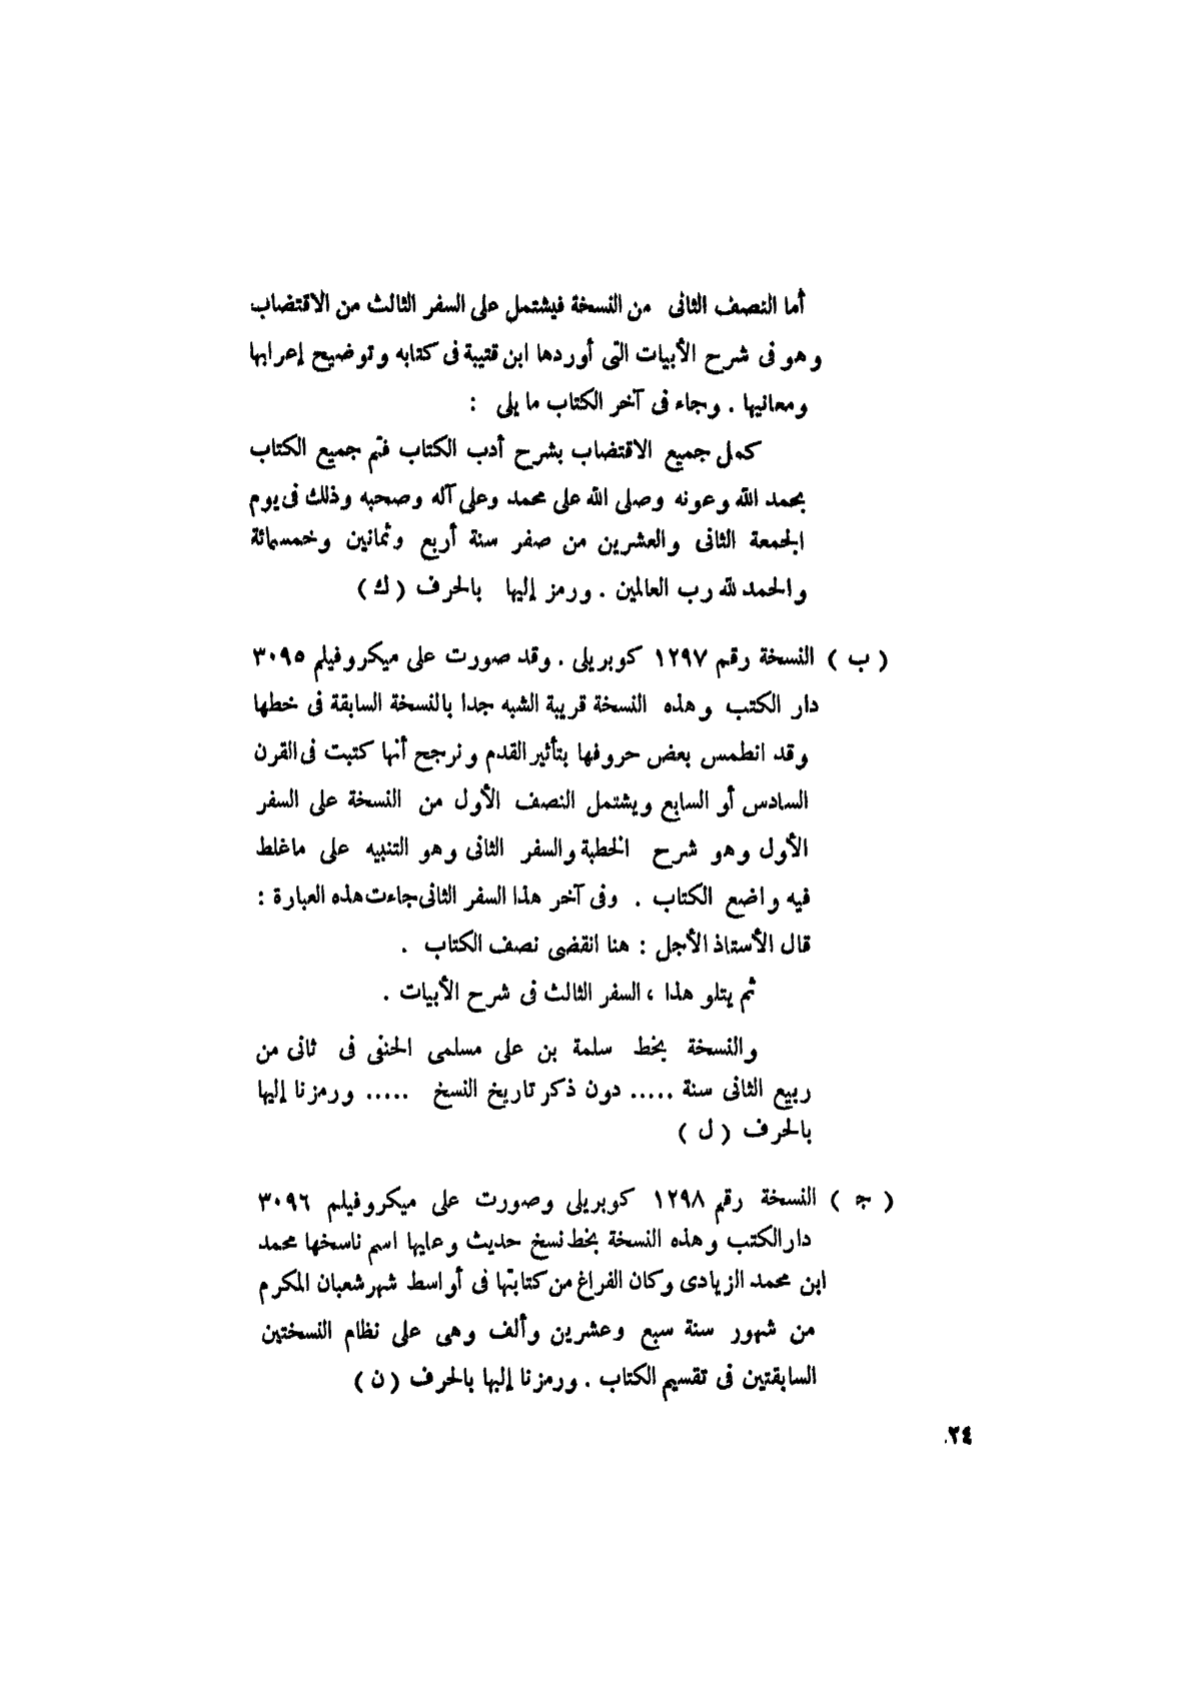 أما النصف الثانى من النسخة فيشتمل على السفر الثالث من الاقتضاب
وهو فى شرح الأبيات التى أوردها ابن قتيبة فى كتابه وتوضيح إعرابها
ومعانيها . وجاء فى آخر الكتاب ما يلى :
كمل جميع الاقتضاب بشرح أدب الكتاب فتم جميع الكتاب
بحمد الله وعونه وصلى الله على محمد وعلى آله وصحبه وذلك فى يوم
الجمعة الثانى والعشرين من صفر سنة أربع وثمانين وخمسمائة
والحمد لله رب العالمين . ورمز إليها بالحرف ( ك )
( ب ) النسخة رقم ١٢٩٧ كوبريلى . وقد صورت على ميكروفيلم ٣٠٩٥
دار الكتب وهذه النسخة قريبة الشبه جدا بالنسخة السابقة فى خطها
وقد انطمس بعض حروفها بتأثير القدم ونرجح أنها كتبت فى القرن
السادس أو السابع ويشتمل النصف الأول من النسخة على السفر
الأول وهو شرح الخطبة والسفر الثانى وهو التنبيه على ماغلط
فيه واضع الكتاب . وفى آخر هذا السفر الثانى جاءت هذه العبارة :
قال الأستاذ الأجل : هنا انقضى نصف الكتاب .
ثم يتلو هذا ، السفر الثالث فى شرح الأبيات .
والنسخة بخط سلمة بن على مسلمى الحنفى فى ثانى من
ربيع الثانى سنة ..... دون ذكر تاريخ النسخ ..... ورمزنا إليها
بالحرف ( ل )
( جـ ) النسخة رقم ١٢٩٨ كوبريلى وصورت على ميكروفيلم ٣٠٩٦
دار الكتب وهذه النسخة بخط نسخ حديث وعليها اسم ناسخها محمد
ابن محمد الزيادى وكان الفراغ من كتابتها فى أواسط شهر شعبان المكرم
من شهور سنة سبع وعشرين وألف وهى على نظام النسختين
السابقتين فى تقسيم الكتاب . ورمزنا إليها بالحرف ( ن )
٢٤